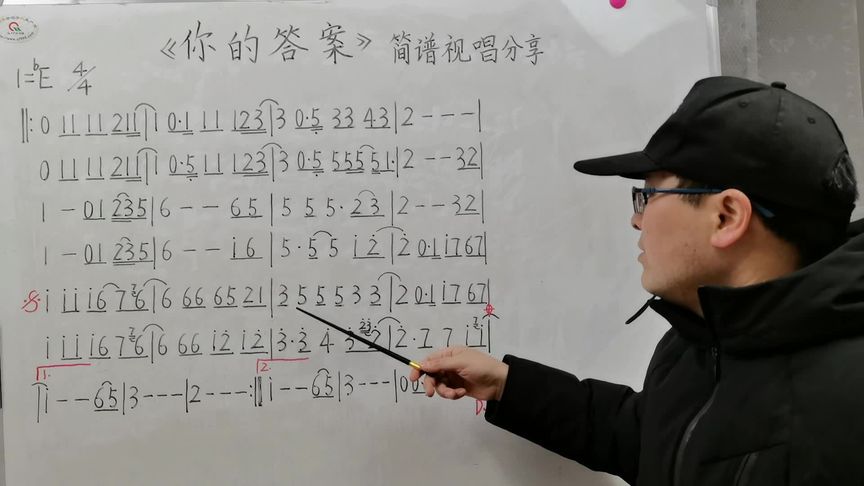 《你的答案》简谱视唱分享
1=ᵇE 4/4
‖: 0 11 11 211 | 1 0·1 11 123 | 3 0·5 33 43 | 2 - - - |
0 11 11 211 | 1 0·5 11 123 | 3 0·5 55551· | 2 - - 32 |
1 - 01 235 | 6 - - 65 | 5 5 5· 23 | 2 - - 32 |
1 - 01 235 | 6 - - i6 | 5· 55 i2 | 2 0·1 i7 67 |
i ii i6 76 | 6 66 65 21 | 3 5 5 5 3 3 | 2 0·1 i7 67 |
i ii i6 76 | 6 66 i2 i2 | 3·3 4
1. 2.
| i - - 65 | 3 - - - | 2 - - - :‖ i - - 65 | 3 - - - | 00